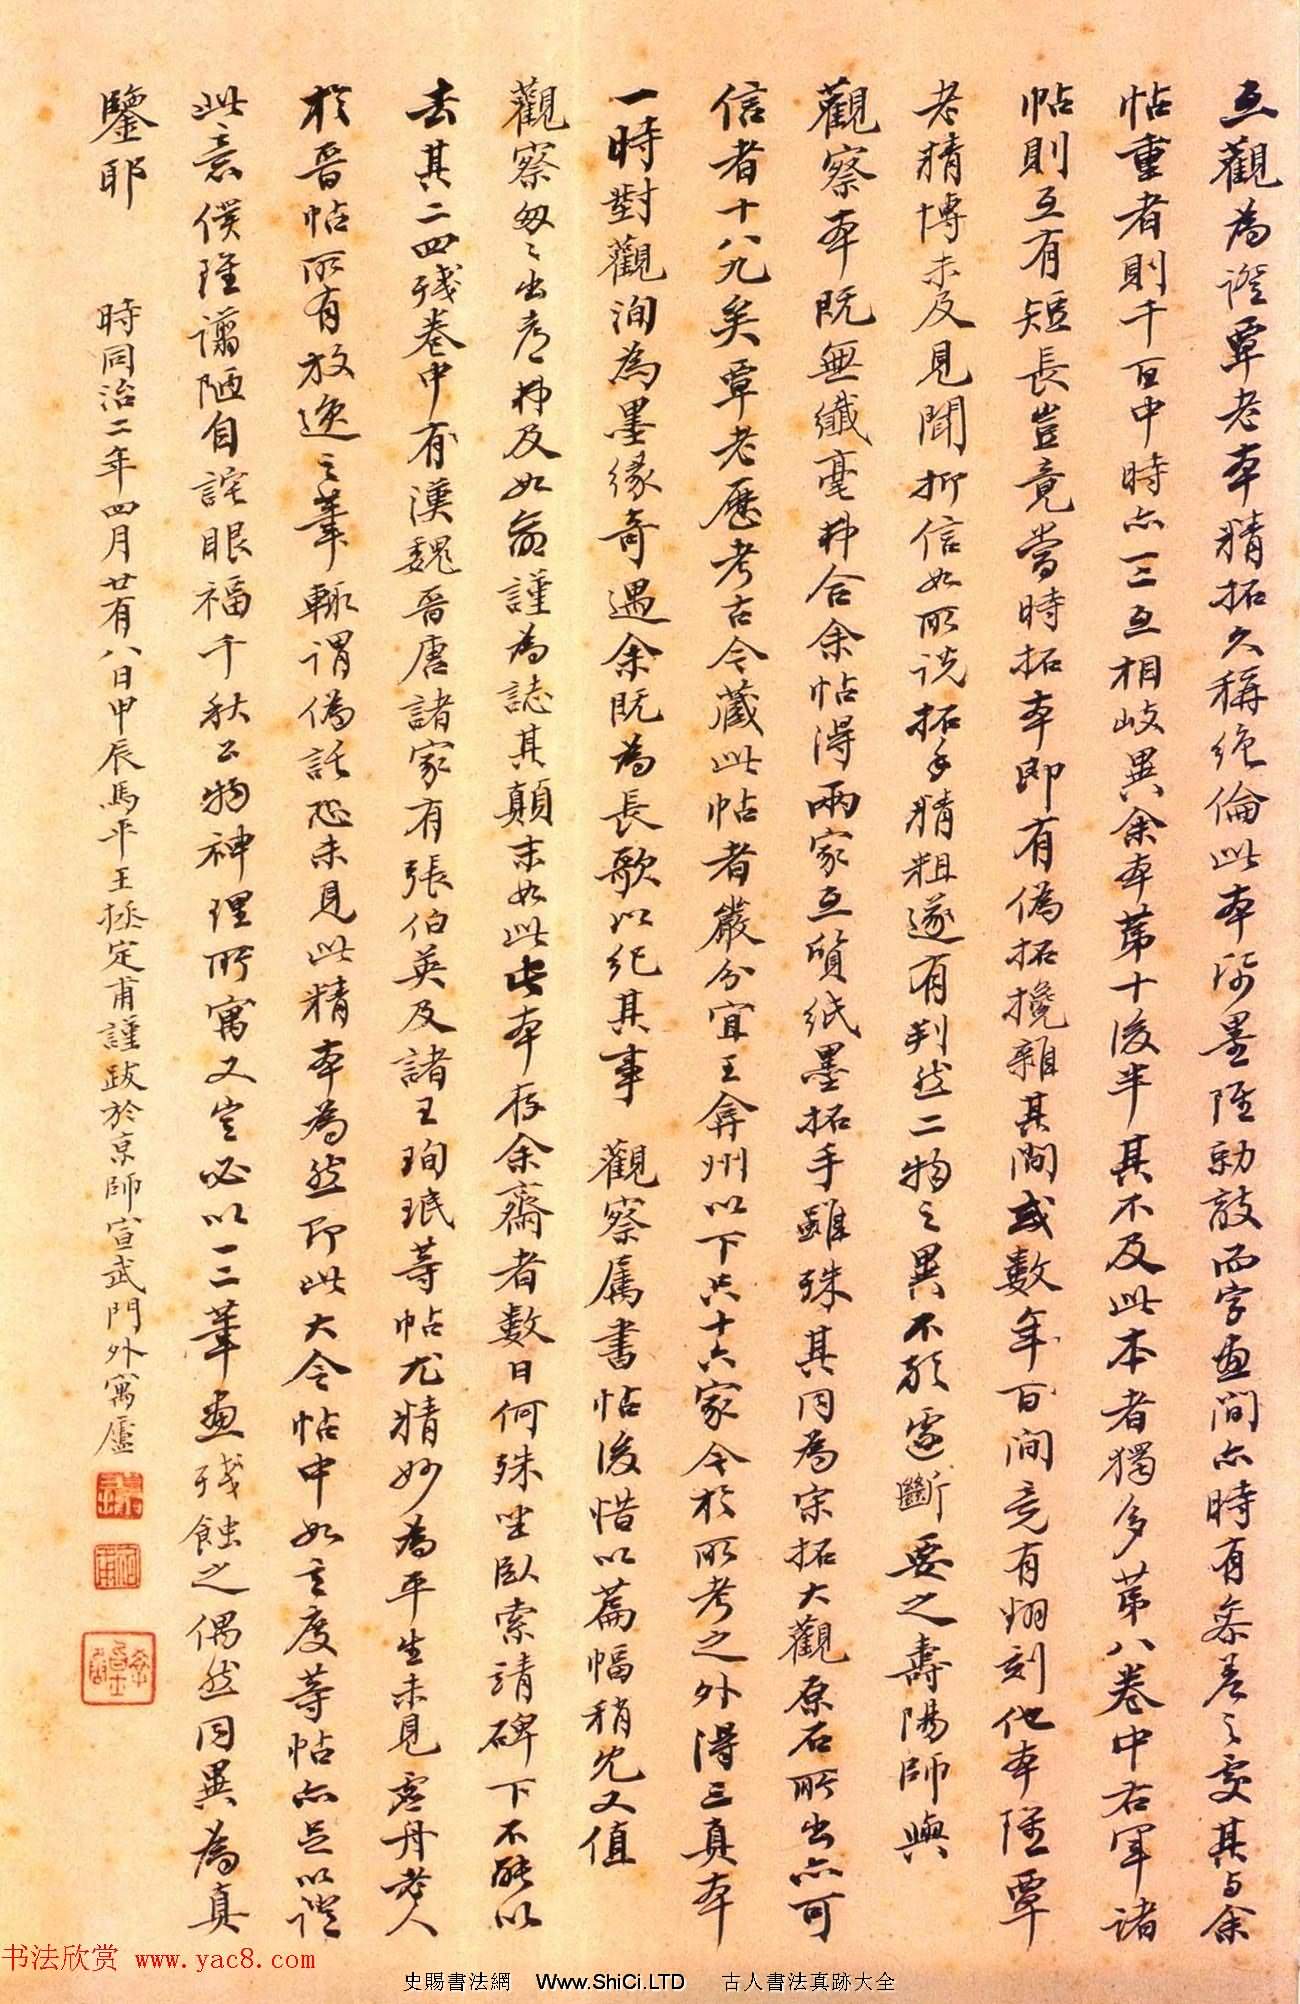 互觀為證覃老本精拓久稱絕倫此本濃墨陲勁敲而字畫間亦時有參差之處其與余
帖重者則千百中時亦一二互相歧異余本第十後半其不及此本者獨多第八卷中右軍諸
帖則互有短長豈竟當時拓本即有偽拓攙雜其間或數年百間竟有翻刻他本陲覃
老精博未及見聞抑信如所說拓手精粗遂有判然二物之異不敢遽斷要之壽陽師與
觀察本既無纖毫弗合余帖得兩家互質紙墨拓手雖殊其同為宋拓大觀原石所出亦可
信者十八九矣覃老歷考古今藏此帖者嚴分宜王弇州以下共十六家今於所考之外得三真本
一時對觀洵為墨緣奇遇余既為長歌以紀其事 觀察屬書帖後惜以篇幅稍允又值
觀察匆匆出都弗及如命謹為誌其顛末如此此本存余齋者數日何殊坐臥索靖碑下不能以
去其二四殘卷中有漢魏晉唐諸家有張伯英及諸王珣珉等帖尤精妙為平生未見雲丹老人
於晉帖所有放逸之筆輒謂偽託恐未見此精本為然即此大令帖中如玄度等帖亦足以證
此意僕瑾譾陋自詫眼福千秋公物神理所寓又豈必以一二筆畫殘蝕之偶然同異為真
鑒耶
時同治二年四月廿有八日甲辰馬平王拯定甫謹跋於京師宣武門外寓廬
书法欣赏 www.yac8.com
史賜書法網 Www.ShiCi.LTD 古人書法真跡大全